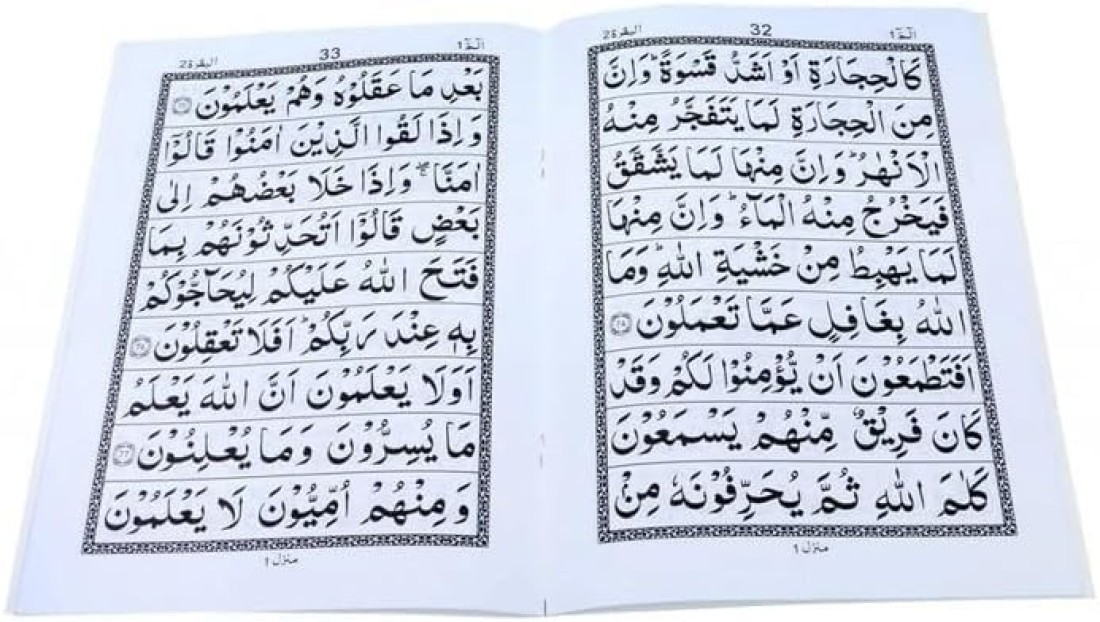 الٓمّٓ ١
32
البقرة ٢
كَالْحِجَارَةِ اَوْ اَشَدُّ قَسْوَةً ؕ وَاِنَّ
مِنَ الْحِجَارَةِ لَمَا يَتَفَجَّرُ مِنْهُ
الْاَنْهٰرُ ؕ وَاِنَّ مِنْهَا لَمَا يَشَّقَّقُ
فَيَخْرُجُ مِنْهُ الْمَآءُ ؕ وَاِنَّ مِنْهَا
لَمَا يَهْبِطُ مِنْ خَشْيَةِ اللّٰهِ ؕ وَمَا
اللّٰهُ بِغَافِلٍ عَمَّا تَعْمَلُوْنَ
اَفَتَطْمَعُوْنَ اَنْ يُّؤْمِنُوْا لَكُمْ وَقَدْ
كَانَ فَرِيْقٌ مِّنْهُمْ يَسْمَعُوْنَ
كَلٰمَ اللّٰهِ ثُمَّ يُحَرِّفُوْنَهٗ مِنْ
منزل ١
الٓمّٓ ١
33
البقرة ٢
بَعْدِ مَا عَقَلُوْهُ وَهُمْ يَعْلَمُوْنَ
وَاِذَا لَقُوا الَّذِيْنَ اٰمَنُوْا قَالُوْٓا
اٰمَنَّا ۖۚ وَاِذَا خَلَا بَعْضُهُمْ اِلٰى
بَعْضٍ قَالُوْٓا اَتُحَدِّثُوْنَهُمْ بِمَا
فَتَحَ اللّٰهُ عَلَيْكُمْ لِيُحَآجُّوْكُمْ
بِهٖ عِنْدَ رَبِّكُمْ ؕ اَفَلَا تَعْقِلُوْنَ
اَوَلَا يَعْلَمُوْنَ اَنَّ اللّٰهَ يَعْلَمُ
مَا يُسِرُّوْنَ وَمَا يُعْلِنُوْنَ
وَمِنْهُمْ اُمِّيُّوْنَ لَا يَعْلَمُوْنَ
منزل ١